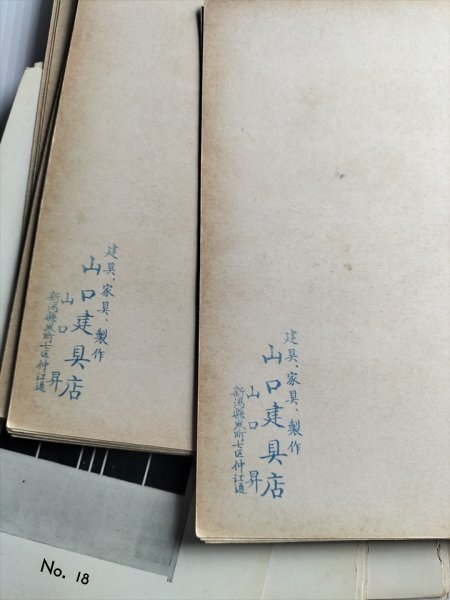 建具、家具、製作
山口建具店
山口 昇
新潟縣巻町七区仲江通
建具、家具、製作
山口建具店
山口 昇
新潟縣巻町七区仲江通
No. 18